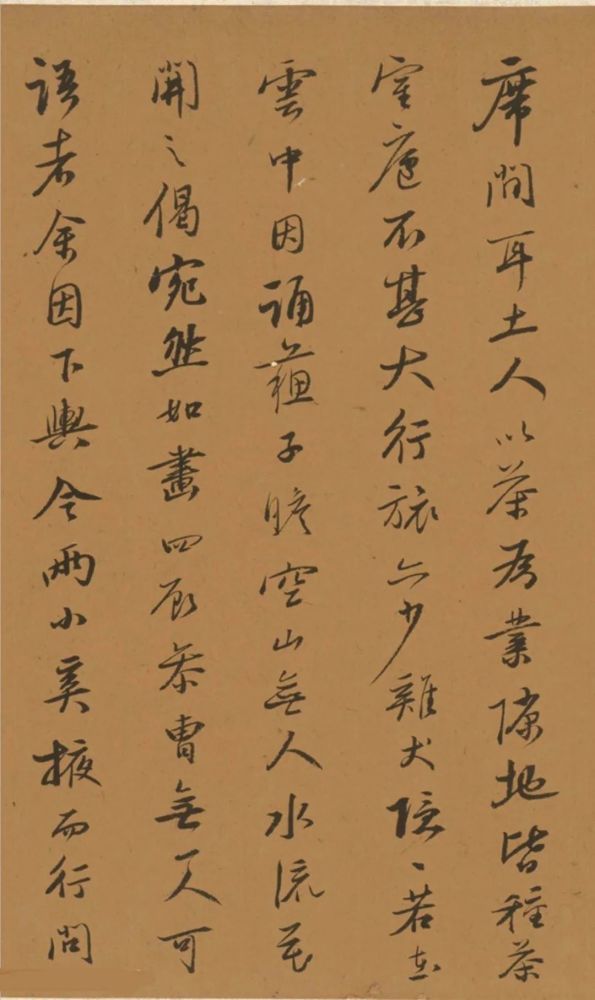 席間耳土人以茶為業隙地皆種茶
室廬不甚大行旅亦少雞犬隱隱若在
雲中因誦蘓子瞻空山無人水流花
開之偈宛然如畫四顧參曹無一人可
語者余因下輿令兩小奚掖而行問